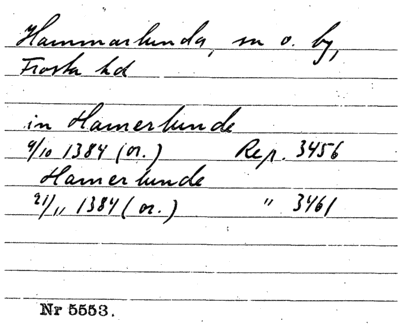 Hammarlunda, sn o. by,
Frosta hd
in Hamerlunde
9/10 1384 (or.) Rep. 3456
Hamerlunde
21/11 1384 (or.) " 3461
Nr 5553.